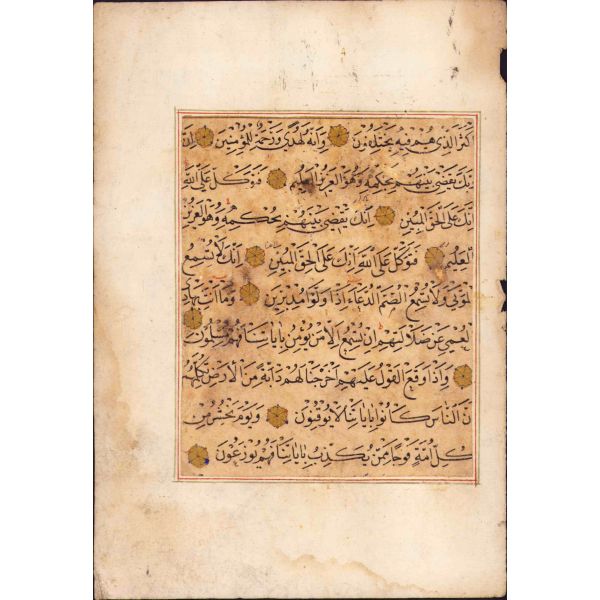 كثر الذى هم فيه يختلفون ۝ وانه لهدى ورحمة للمؤمنين ۝ ان
نك يقضى بينهم بحكمه وهو العزيز العليم ۝ فتوكل على الله
نك على الحق المبين ۝ انك يقضى بينهم بحكمه وهو العزيز
لعليم ۝ فتوكل على الله انك على الحق المبين ۝ انك لا تسمع
لموتى ولا تسمع الصم الدعاء اذا ولوا مدبرين ۝ وما انت بهدى
لعمي عن ضلالتهم ان تسمع الا من يؤمن باياتنا فهم مسلمون ۝
۝ واذا وقع القول عليهم اخرجنا لهم دابة من الارض تكلمهم
ن الناس كانوا باياتنا لا يوقنون ۝ ويوم نحشر من
كل امة فوجا ممن يكذب باياتنا فهم يوزعون ۝